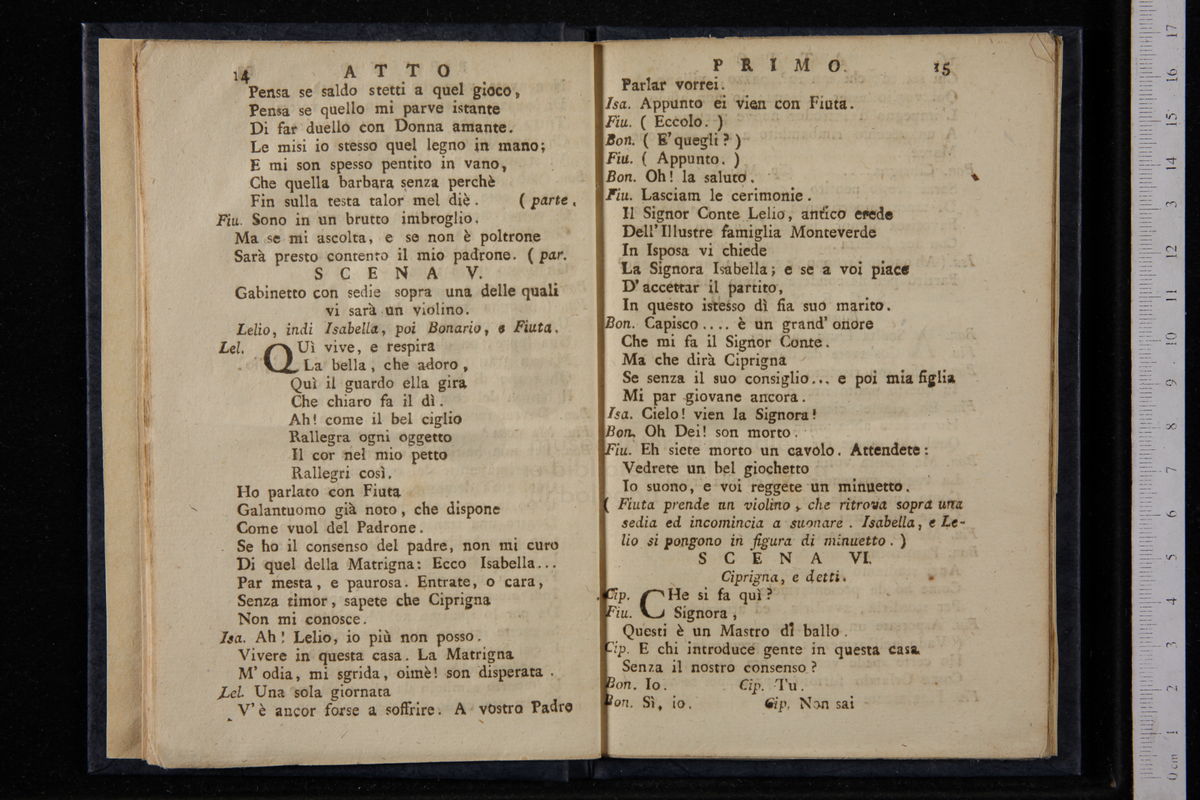 14 ATTO
Pensa se saldo stetti a quel gioco,
Pensa se quello mi parve istante
Di far duello con Donna amante.
Le misi io stesso quel legno in mano;
E mi son spesso pentito in vano,
Che quella barbara senza perchè
Fin sulla testa talor mel diè. ( parte.
Fiu. Sono in un brutto imbroglio.
Ma se mi ascolta, e se non è poltrone
Sarà presto contento il mio padrone. ( par.
SCENA V.
Gabinetto con sedie sopra una delle quali
vi sarà un violino.
Lelio, indi Isabella, poi Bonario, e Fiuta.
Lel. QUì vive, e respira
La bella, che adoro,
Quì il guardo ella gira
Che chiaro fa il dì.
Ah! come il bel ciglio
Rallegra ogni oggetto
Il cor nel mio petto
Rallegri così.
Ho parlato con Fiuta
Galantuomo già noto, che dispone
Come vuol del Padrone.
Se ho il consenso del padre, non mi curo
Di quel della Matrigna: Ecco Isabella...
Par mesta, e paurosa. Entrate, o cara,
Senza timor, sapete che Ciprigna
Non mi conosce.
Isa. Ah! Lelio, io più non posso.
Vivere in questa casa. La Matrigna
M'odia, mi sgrida, oimè! son disperata.
Lel. Una sola giornata
V'è ancor forse a soffrire. A vostro Padre
PRIMO. 15
Parlar vorrei.
Isa. Appunto ei vien con Fiuta.
Fiu. ( Eccolo. )
Bon. ( E' quegli? )
Fiu. ( Appunto. )
Bon. Oh! la saluto.
Fiu. Lasciam le cerimonie.
Il Signor Conte Lelio, antico erede
Dell'Illustre famiglia Monteverde
In Isposa vi chiede
La Signora Isabella; e se a voi piace
D'accettar il partito,
In questo istesso dì fia suo marito.
Bon. Capisco.... è un grand'onore
Che mi fa il Signor Conte.
Ma che dirà Ciprigna
Se senza il suo consiglio... e poi mia figlia
Mi par giovane ancora.
Isa. Cielo! vien la Signora!
Bon. Oh Dei! son morto.
Fiu. Eh siete morto un cavolo. Attendete:
Vedrete un bel giochetto
Io suono, e voi reggete un minuetto.
( Fiuta prende un violino, che ritrova sopra una
sedia ed incomincia a suonare. Isabella, e Le-
lio si pongono in figura di minuetto. )
SCENA VI.
Ciprigna, e detti.
Cip. CHe si fa quì?
Fiu. Signora,
Questi è un Mastro di ballo.
Cip. E chi introduce gente in questa casa
Senza il nostro consenso?
Bon. Io. Cip. Tu.
Bon. Sì, io. Cip. Non sai
0 cm 1 2 3 4 5 6 7 8 9 10 11 12 13 14 15 16 17